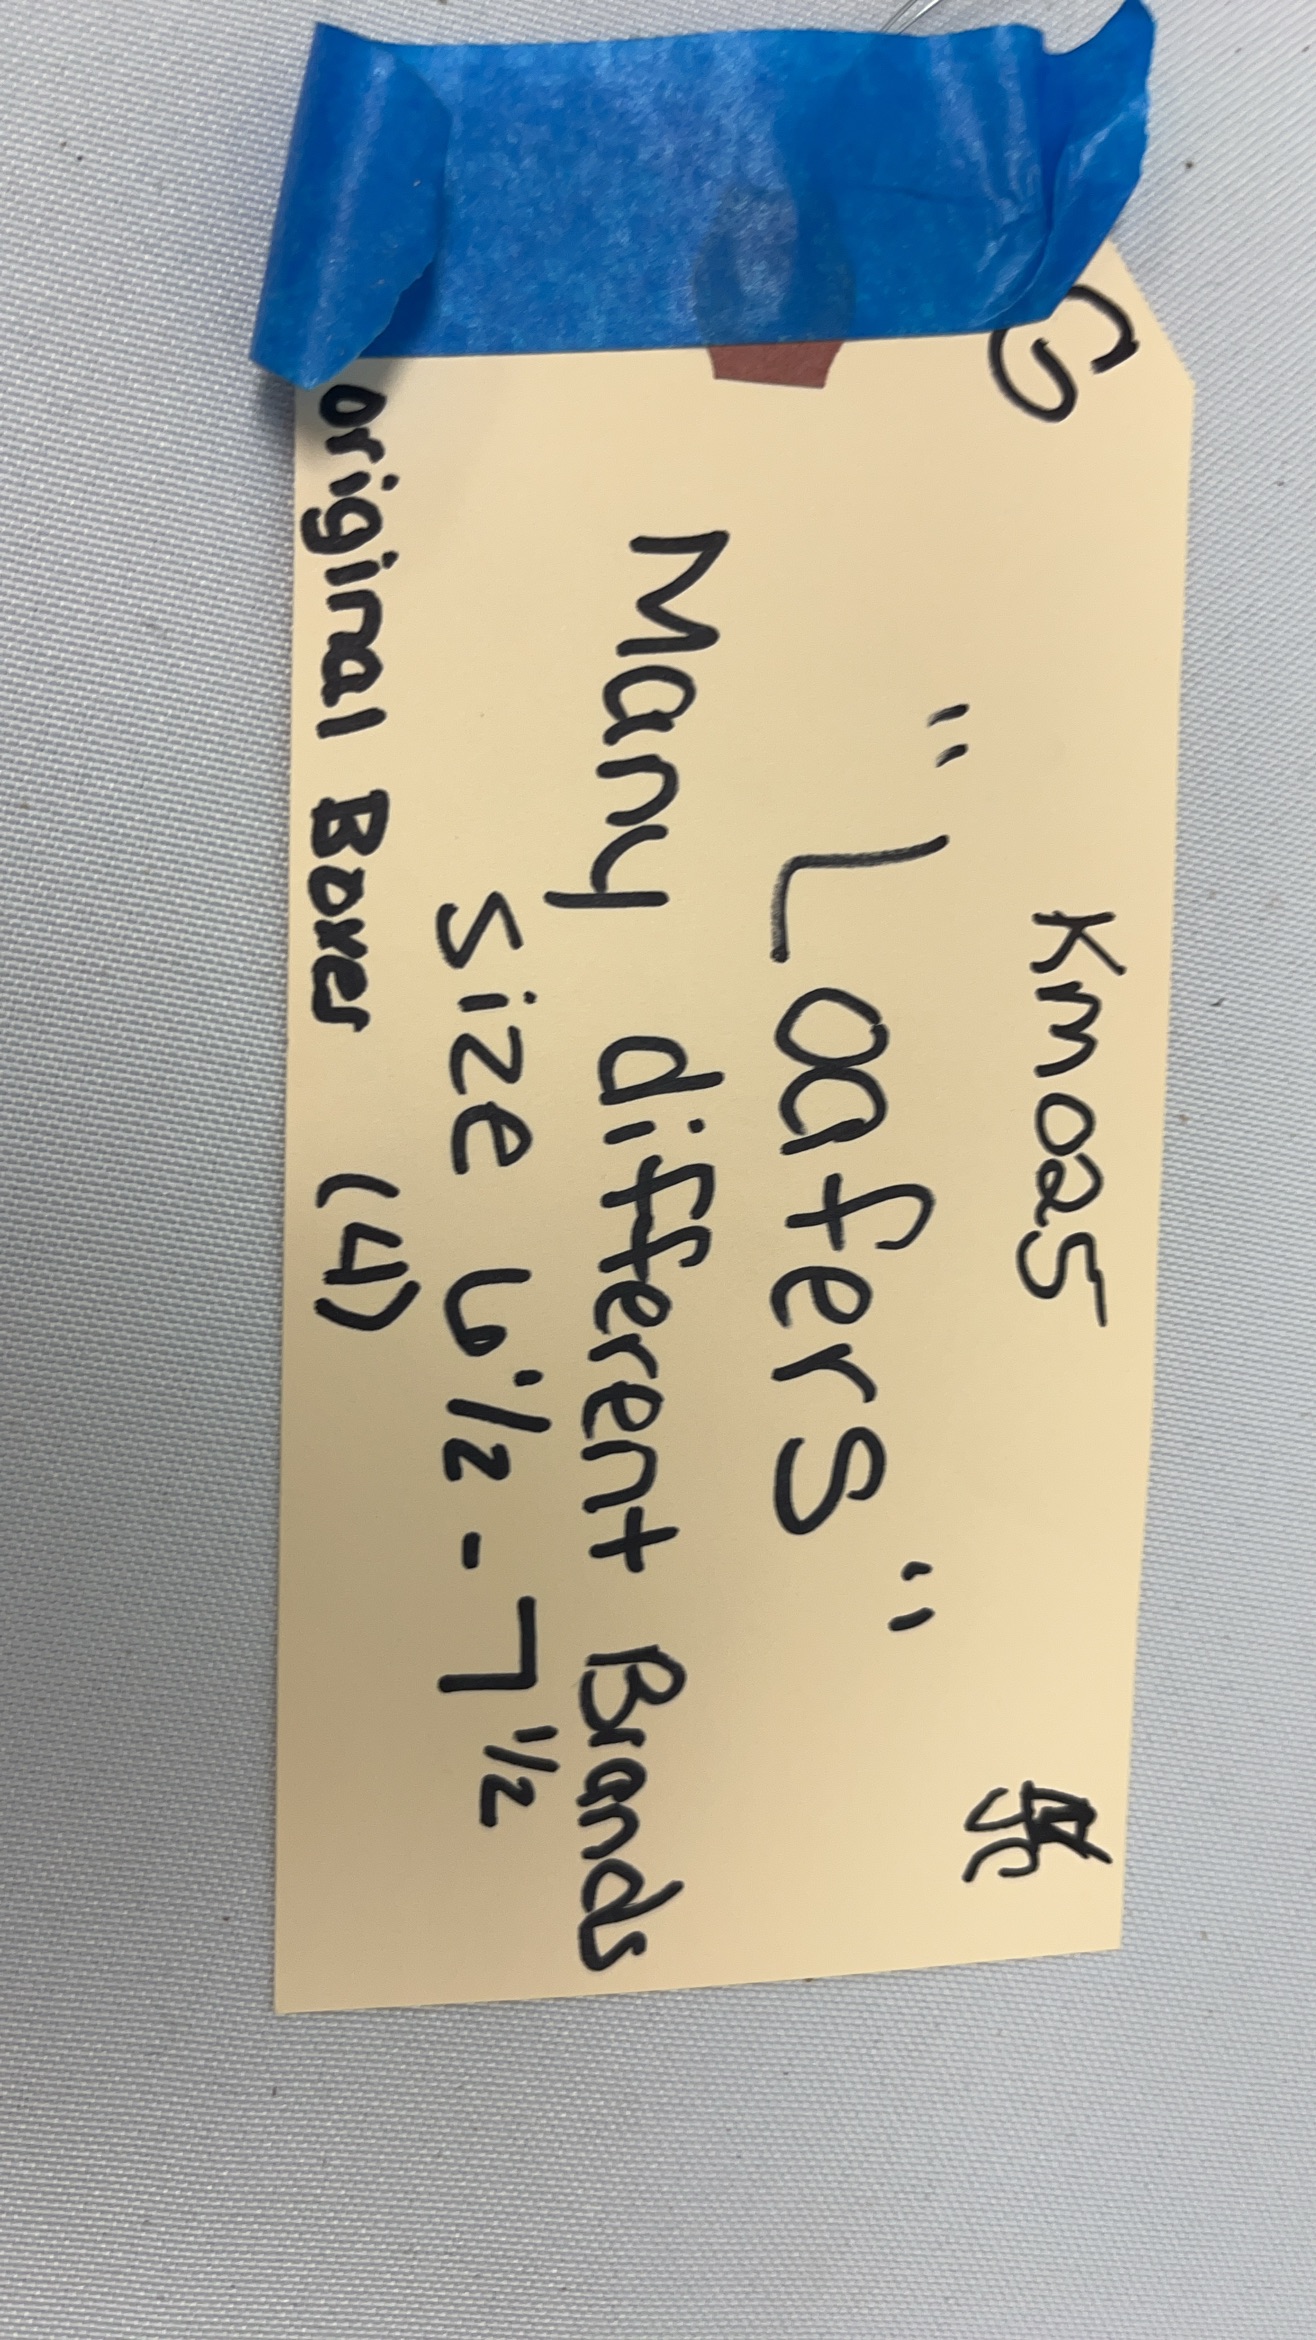 Km025
"Loafers"
Many different Brands
Size 6 1/2 - 7 1/2
original Boxes (4)